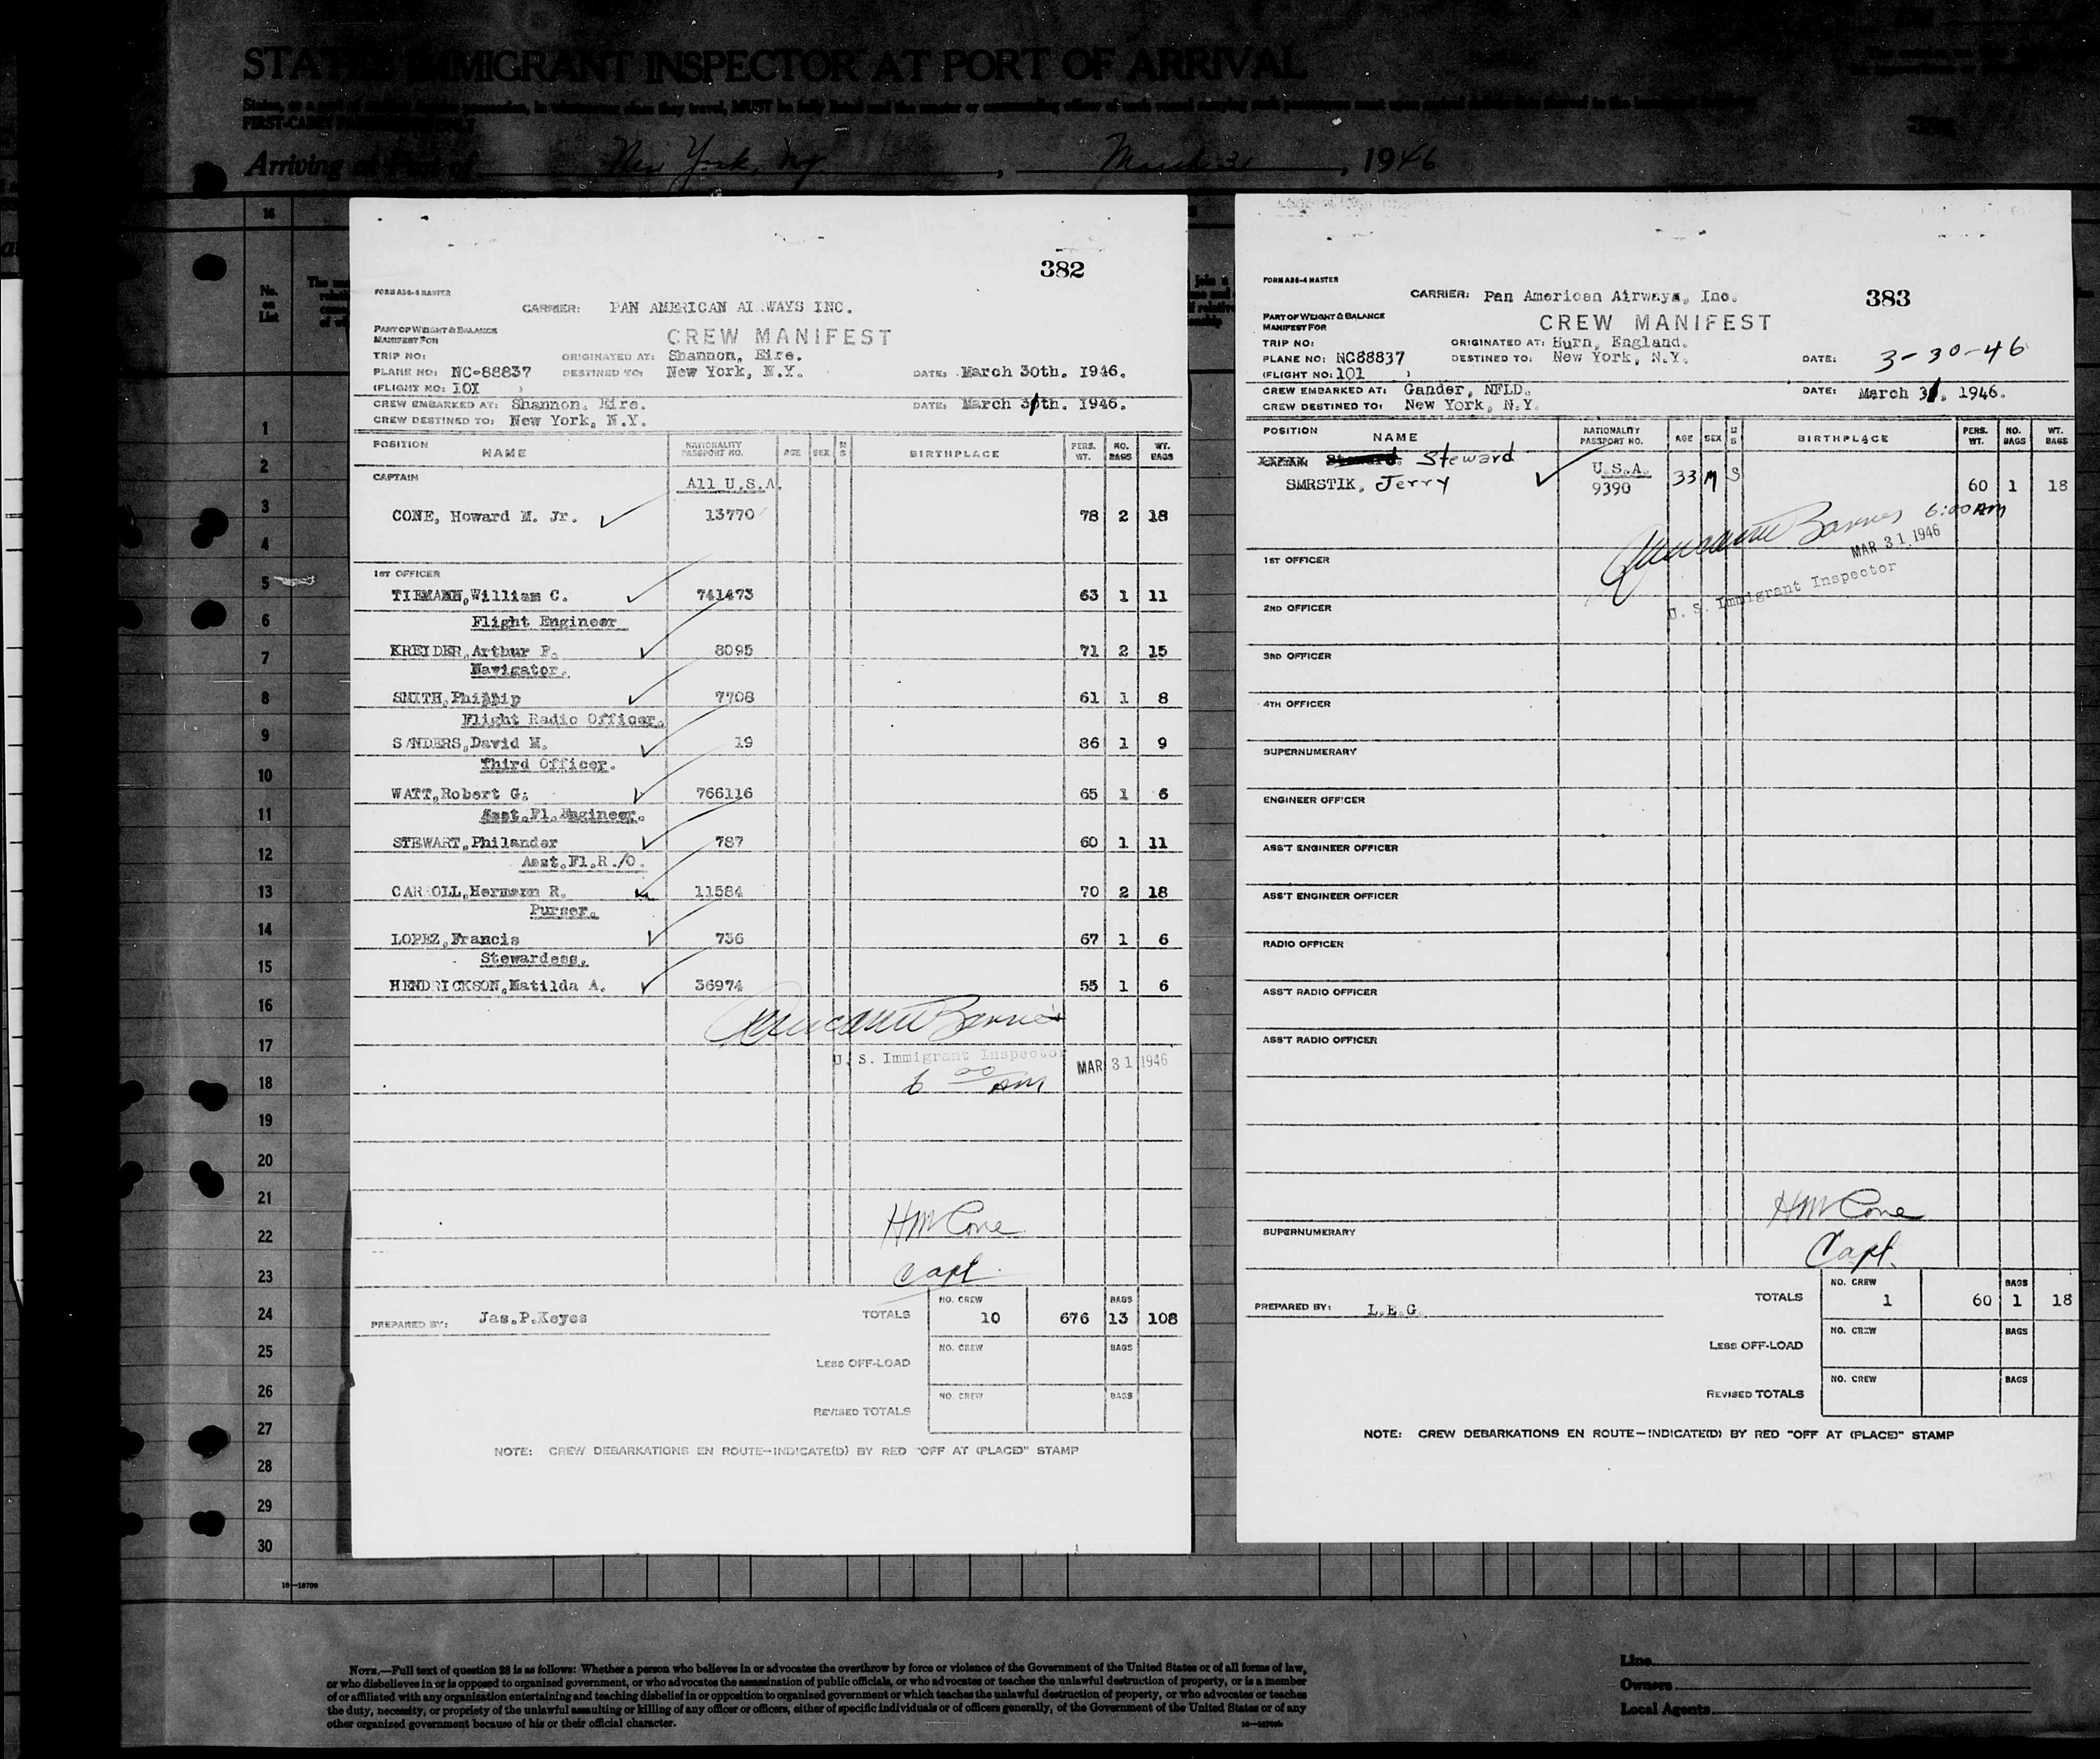 STATES IMMIGRANT INSPECTOR AT PORT OF ARRIVAL
Arriving at Port of New York, Ny. , March 31 , 1946
No. on List
382
FORM A26-4 MASTER
CARRIER: PAN AMERICAN AIRWAYS INC.
PART OF WEIGHT & BALANCE
MANIFEST FOR
CREW MANIFEST
TRIP NO: ORIGINATED AT: Shannon, Eire.
PLANE NO: NC-88837 DESTINED TO: New York, N.Y. DATE: March 30th. 1946.
(FLIGHT NO: 101 )
CREW EMBARKED AT: Shannon, Eire. DATE: March 31th. 1946.
CREW DESTINED TO: New York, N.Y.
POSITION NAME NATIONALITY PASSPORT NO. AGE SEX M S BIRTHPLACE PERS. WT. NO. BAGS WT. BAGS
CAPTAIN All U.S.A.
CONE, Howard M. Jr. 13770 78 2 18
1ST OFFICER
TIEMANN, William C. 741473 63 1 11
Flight Engineer
KREIDER, Arthur F. 8095 71 2 15
Navigator.
SMITH, Philip 7708 61 1 8
Flight Radio Officer.
SANDERS, David M. 19 86 1 9
Third Officer.
WATT, Robert G. 766116 65 1 6
Asst.Fl.Engineer.
STEWART, Philander 787 60 1 11
Asst.Fl.R./O.
CARROLL, Hermann R. 11584 70 2 18
Purser.
LOPEZ, Francis 736 67 1 6
Stewardess.
HENDRICKSON, Matilda A. 36974 55 1 6
Barnes
U. S. Immigrant Inspector MAR 31 1946
6 00 AM
HM Cone
Capt.
PREPARED BY: Jas.P.Keyes TOTALS NO. CREW 10 676 BAGS 13 108
LESS OFF-LOAD NO. CREW BAGS
REVISED TOTALS NO. CREW BAGS
NOTE: CREW DEBARKATIONS EN ROUTE—INDICATE(D) BY RED "OFF AT (PLACE)" STAMP
FORM A26-4 MASTER
CARRIER: Pan American Airways, Inc. 383
PART OF WEIGHT & BALANCE
MANIFEST FOR
CREW MANIFEST
TRIP NO: ORIGINATED AT: Hurn, England.
PLANE NO: NC88837 DESTINED TO: New York, N.Y. DATE: 3-30-46
(FLIGHT NO: 101 )
CREW EMBARKED AT: Gander, NFLD. DATE: March 31, 1946.
CREW DESTINED TO: New York, N.Y.
POSITION NAME NATIONALITY PASSPORT NO. AGE SEX M S BIRTHPLACE PERS. WT. NO. BAGS WT. BAGS
Steward
SMRSTIK, Jerry U.S.A. 9390 33 M S 60 1 18
Barnes 6:00 AM
MAR 31 1946
U. S. Immigrant Inspector
1ST OFFICER
2ND OFFICER
3RD OFFICER
4TH OFFICER
SUPERNUMERARY
ENGINEER OFFICER
ASS'T ENGINEER OFFICER
ASS'T ENGINEER OFFICER
RADIO OFFICER
ASS'T RADIO OFFICER
ASS'T RADIO OFFICER
HM Cone
SUPERNUMERARY
Capt.
PREPARED BY: L.E.G. TOTALS NO. CREW 1 60 BAGS 1 18
LESS OFF-LOAD NO. CREW BAGS
REVISED TOTALS NO. CREW BAGS
NOTE: CREW DEBARKATIONS EN ROUTE—INDICATE(D) BY RED "OFF AT (PLACE)" STAMP
1
2
3
4
5
6
7
8
9
10
11
12
13
14
15
16
17
18
19
20
21
22
23
24
25
26
27
28
29
30
16—18709
NOTE.—Full text of question 28 is as follows: Whether a person who believes in or advocates the overthrow by force or violence of the Government of the United States or of all forms of law,
or who disbelieves in or is opposed to organized government, or who advocates the assassination of public officials, or who advocates or teaches the unlawful destruction of property, or is a member
of or affiliated with any organization entertaining and teaching disbelief in or opposition to organized government or which teaches the unlawful destruction of property, or who advocates or teaches
the duty, necessity, or propriety of the unlawful assaulting or killing of any officer or officers, either of specific individuals or of officers generally, of the Government of the United States or of any
other organized government because of his or their official character.
Line
Owners
Local Agents